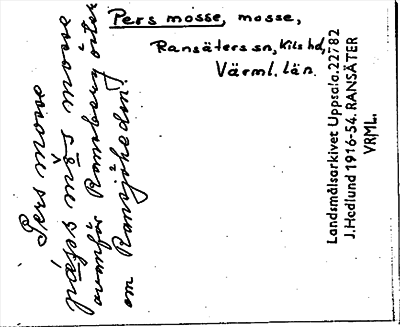 Pers mosse, mosse,
Ransäters sn, Kils hd,
Värml. län.
Pers mosse
mosse
ovanför Ramsberg öster
om Ransjöhedin.
Landsmålsarkivet Uppsala. 22782
J. Hedlund 1916-54. RANSÄTER
VRML.